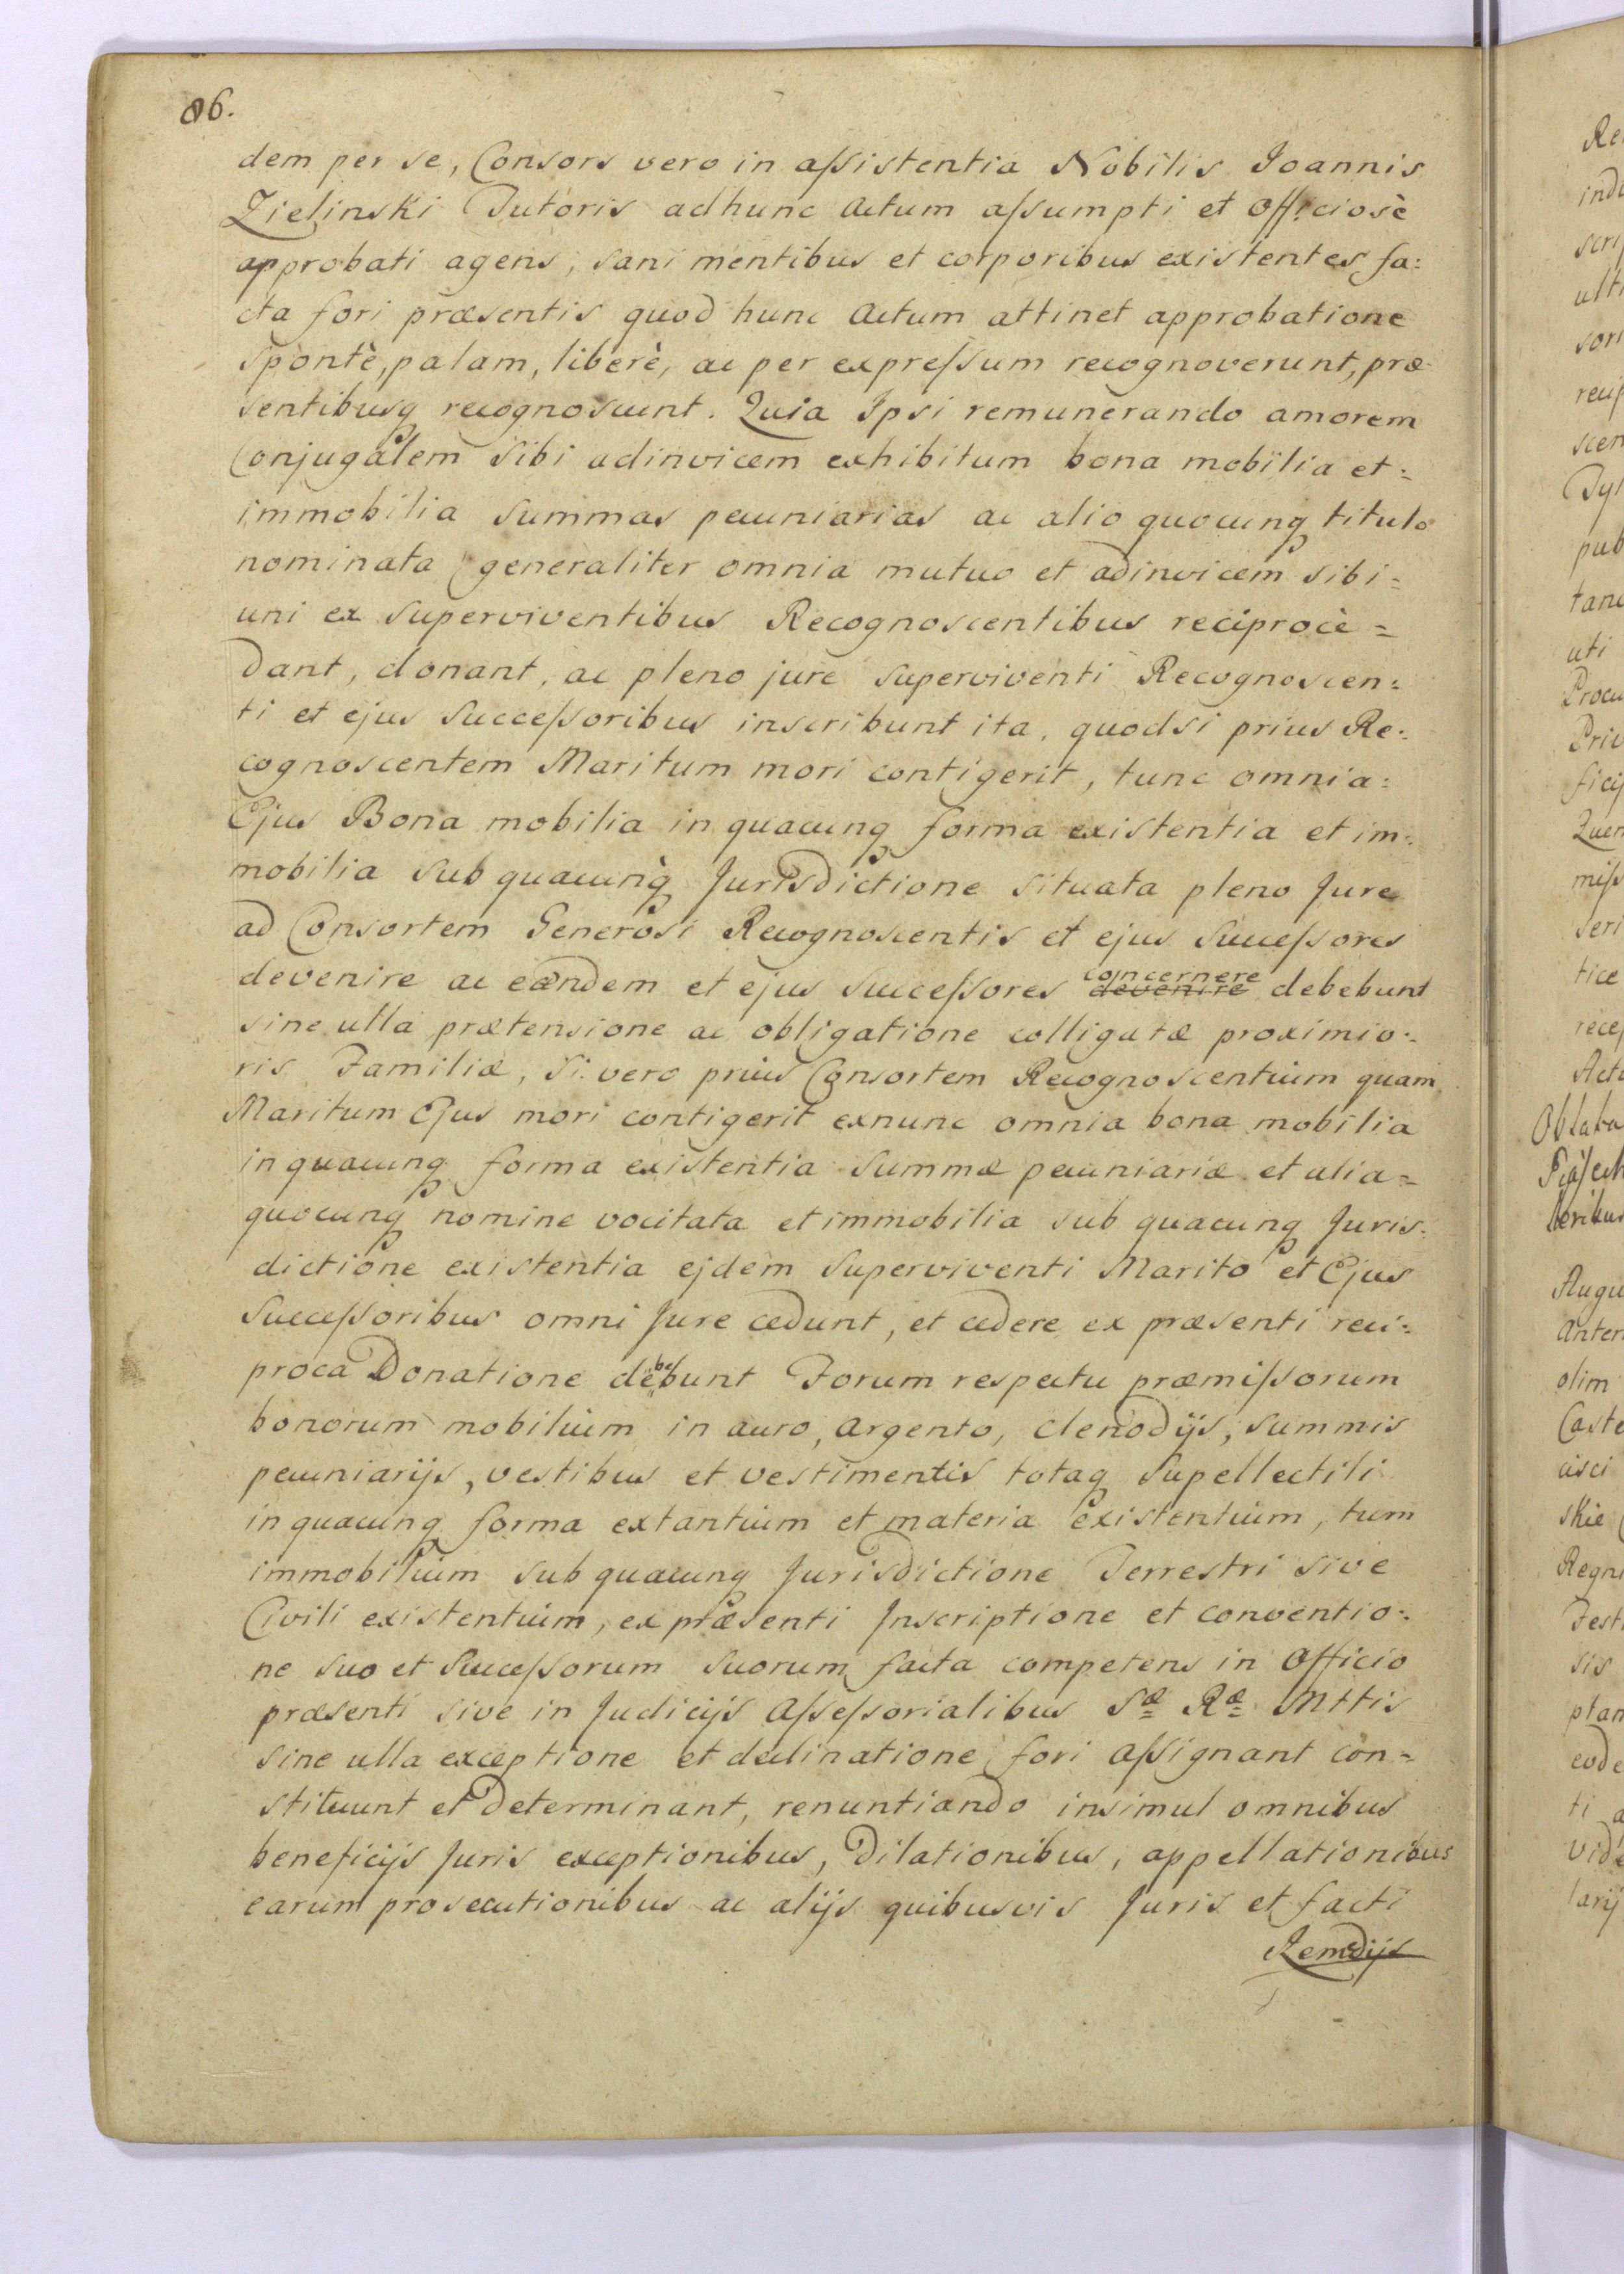 86.
dem per se, Consors vero in aſsistentia Nobilis Joannis
Zielinski Tutoris adhunc Actum aſsumpti et Officiosè
approbati agens, sani mentibus et corporibus existentes fa:
cta fori præsentis quod hunc Actum attinet approbatione
Spontè, palam, liberè, ac per expreſsum recognoverunt, præ-
sentibusq recognoscunt. Quia Ipsi remunerando amorem
Conjugalem Sibi adinvicem exhibitum bona mobilia et=
immobilia Summas pecuniarias ac alio quocunq titulo
nominata generaliter omnia mutuo et adinvicem sibi=
uni ex superviventibus Recognoscentibus reciprocè=
dant, donant, ac pleno jure superviventi Recognoscen=
ti et ejus Succeſsoribus inscribunt ita, quodsi prius Re:
cognoscentem Maritum mori contigerit, tunc omnia:
Ejus Bona mobilia in quacunq forma existentia et im:
mobilia Sub quacunq̀ Jurisdictione Situata pleno Jure
ad Consortem Generosi Recognoscentis et ejus Succeſsores
devenire ac eandem et ejus succeſsores devenire concernere debebunt
sine ulla prætensione ac obligatione colligatæ proximio:
ris Familiæ, Si vero prius Consortem Recognoscentium quam
Maritum Ejus mori contigerit exnunc omnia bona mobilia
in quacunq forma existentia Summæ pecuniariæ et alia=
quocunq nomine vocitata et immobilia sub quacunq Juris:
dictione existentia ejdem Superviventi Marito et Ejus
Succeſsoribus omni Jure cedunt, et cedere ex præsenti reci=
proca Donatione debebunt Forum respectu præmiſsorum
bonorum mobilium in auro, argento, clenodijs, Summis
pecuniarijs, vestibus et vestimentis totaq Supellectili
in quacunq forma extantium et materia existentium, tum
immobilium Sub quacunq Jurisdictione Terrestri sive
Civili existentium, ex præsenti Inscriptione et conventio:
ne Suo et Succeſsorum Suorum facta competens in Officio
præsenti sive in Judicijs Aſseſsorialibus Sæ Ræ Mttis
sine ulla exceptione et declinatione fori aſsignant con=
stituunt et Determinant, renuntiando insimul omnibus
beneficijs Juris exceptionibus, Dilationibus, appellationibus
earum prosecutionibus ac alijs quibusvis Juris et facti
Remedijs
Re
ind
scri
ult
sori
reci
scen
Tyt
pub
tan
uti
Procu
Priv
ficij
Quem
miſs
seri
tice
rece
Actu
Oblata
Augu
anter
olim
Caste
cisci
skie
Regni
Fest
sis
plan
eode
ti a
vide
larij